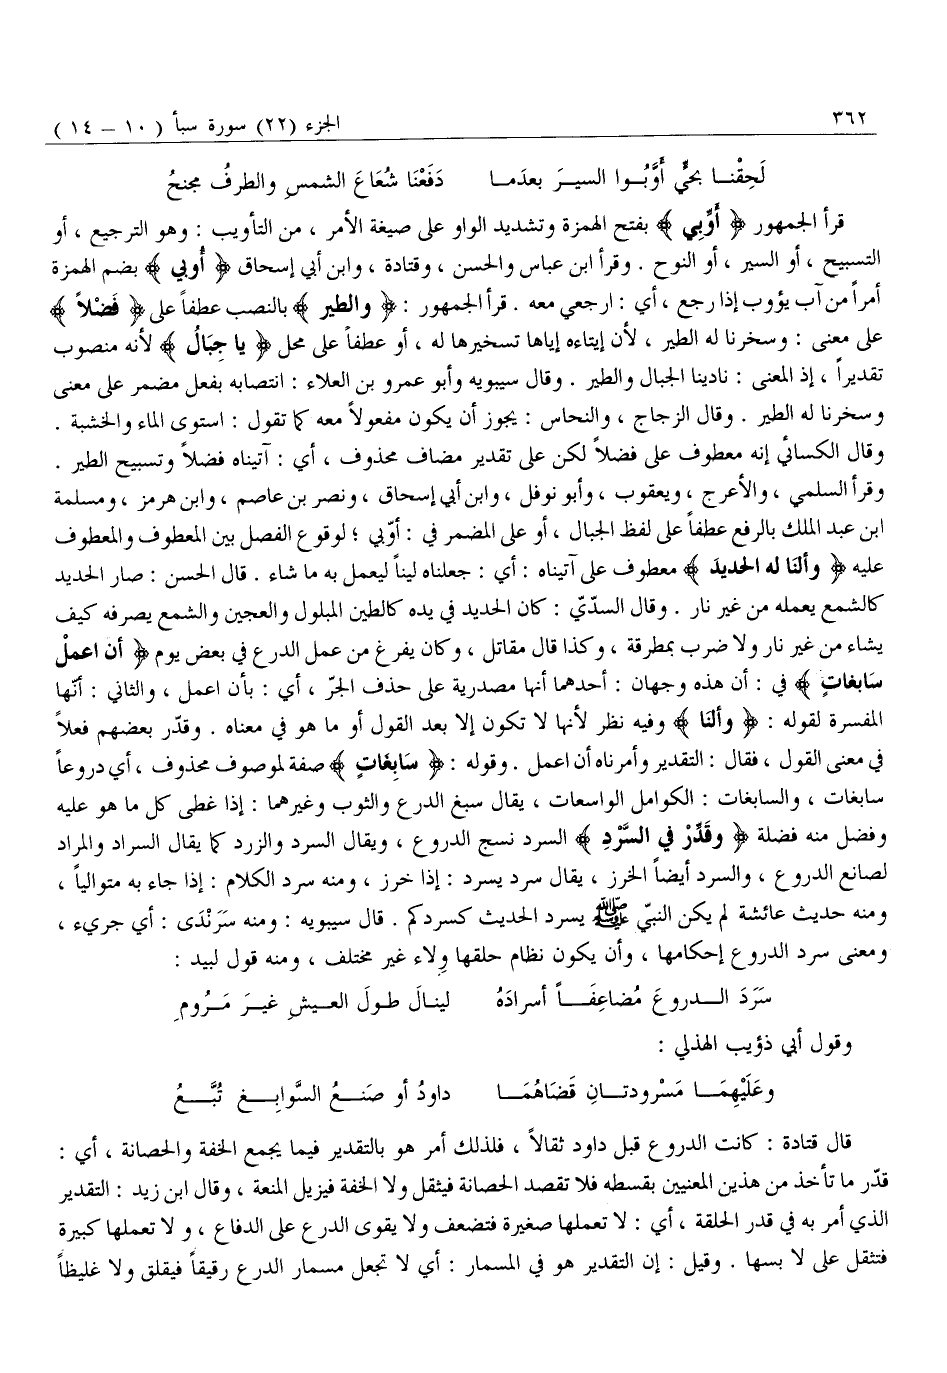 ٣٦٢ الجزء (٢٢) سورة سبأ ( ١٠ – ١٤ )
لَحِقْنـا بحَيٍّ أَوَّبُـوا السيـرَ بعدَمـا دَفَعْنَا شُعَاعَ الشمسِ والطرفُ مجنحُ
قرأ الجمهور ﴿ أَوِّبِي ﴾ بفتح الهمزة وتشديد الواو على صيغة الأمر ، من التأويب : وهو الترجيع ، أو
التسبيح ، أو السير ، أو النوح . وقرأ ابن عباس والحسن ، وقتادة ، وابن أبي إسحاق ﴿ أُوبي ﴾ بضم الهمزة
أمراً من آب يؤوب إذا رجع ، أي : ارجعي معه . قرأ الجمهور : ﴿ والطير ﴾ بالنصب عطفاً على ﴿ فَضْلاً ﴾
على معنى : وسخرنا له الطير ، لأن إيتاءه إياها تسخيرها له ، أو عطفاً على محل ﴿ يا جِبَالُ ﴾ لأنه منصوب
تقديراً ، إذ المعنى : نادينا الجبال والطير . وقال سيبويه وأبو عمرو بن العلاء : انتصابه بفعل مضمر على معنى
وسخرنا له الطير . وقال الزجاج ، والنحاس : يجوز أن يكون مفعولاً معه كما تقول : استوى الماء والخشبة .
وقال الكسائي إنه معطوف على فضلاً لكن على تقدير مضاف محذوف ، أي : آتيناه فضلاً وتسبيح الطير .
وقرأ السلمي ، والأعرج ، ويعقوب ، وأبو نوفل ، وابن أبي إسحاق ، ونصر بن عاصم ، وابن هرمز ، ومسلمة
ابن عبد الملك بالرفع عطفاً على لفظ الجبال ، أو على المضمر في : أوّبي ؛ لوقوع الفصل بين المعطوف والمعطوف
عليه ﴿ وألنَا له الحديدَ ﴾ معطوف على آتيناه : أي : جعلناه ليناً ليعمل به ما شاء . قال الحسن : صار الحديد
كالشمع يعمله من غير نار . وقال السدّيّ : كان الحديد في يده كالطين المبلول والعجين والشمع يصرفه كيف
يشاء من غير نار ولا ضرب بمطرقة ، وكذا قال مقاتل ، وكان يفرغ من عمل الدرع في بعض يوم ﴿ أن اعملْ
سَابغاتٍ ﴾ في : أن هذه وجهان : أحدهما أنها مصدرية على حذف الجرّ ، أي : بأن اعمل ، والثاني : أنّها
المفسرة لقوله : ﴿ وألنَا ﴾ وفيه نظر لأنها لا تكون إلا بعد القول أو ما هو في معناه . وقدّر بعضهم فعلاً
في معنى القول ، فقال : التقدير وأمرناه أن اعمل . وقوله : ﴿ سَابِغَاتٍ ﴾ صفة لموصوف محذوف ، أي دروعاً
سابغات ، والسابغات : الكوامل الواسعات ، يقال سبغ الدرع والثوب وغيرهما : إذا غطى كل ما هو عليه
وفضل منه فضلة ﴿ وقَدِّرْ في السَّرْدِ ﴾ السرد نسج الدروع ، ويقال السرد والزرد كما يقال السراد والمراد
لصانع الدروع ، والسرد أيضاً الخرز ، يقال سرد يسرد : إذا خرز ، ومنه سرد الكلام : إذا جاء به متوالياً ،
ومنه حديث عائشة لم يكن النبيّ ﷺ يسرد الحديث كسردكم . قال سيبويه : ومنه سَرَنْدَى : أي جريء ،
ومعنى سرد الدروع إحكامها ، وأن يكون نظام حلقها وِلاء غير مختلف ، ومنه قول لبيد :
سَرَدَ الـدروعَ مُضاعِفَـاً أسرادَهُ لينالَ طولَ العيشِ غيرَ مَـرُومِ
وقول أبي ذؤيب الهذلي :
وعَلَيْهِمَـا مَسْرودتـانِ قَضَاهُمَـا داودُ أو صَنَـعُ السَّوابِـغِ تُبَّـعُ
قال قتادة : كانت الدروع قبل داود ثقالاً ، فلذلك أمر هو بالتقدير فيما يجمع الخفة والحصانة ، أي :
قدّر ما تأخذ من هذين المعنيين بقسطه فلا تقصد الحصانة فيثقل ولا الخفة فيزيل المنعة ، وقال ابن زيد : التقدير
الذي أمر به في قدر الحلقة ، أي : لا تعملها صغيرة فتضعف ولا يقوى الدرع على الدفاع ، و لا تعملها كبيرة
فتثقل على لا بسها . وقيل : إن التقدير هو في المسمار : أي لا تجعل مسمار الدرع رقيقاً فيقلق ولا غليظاً